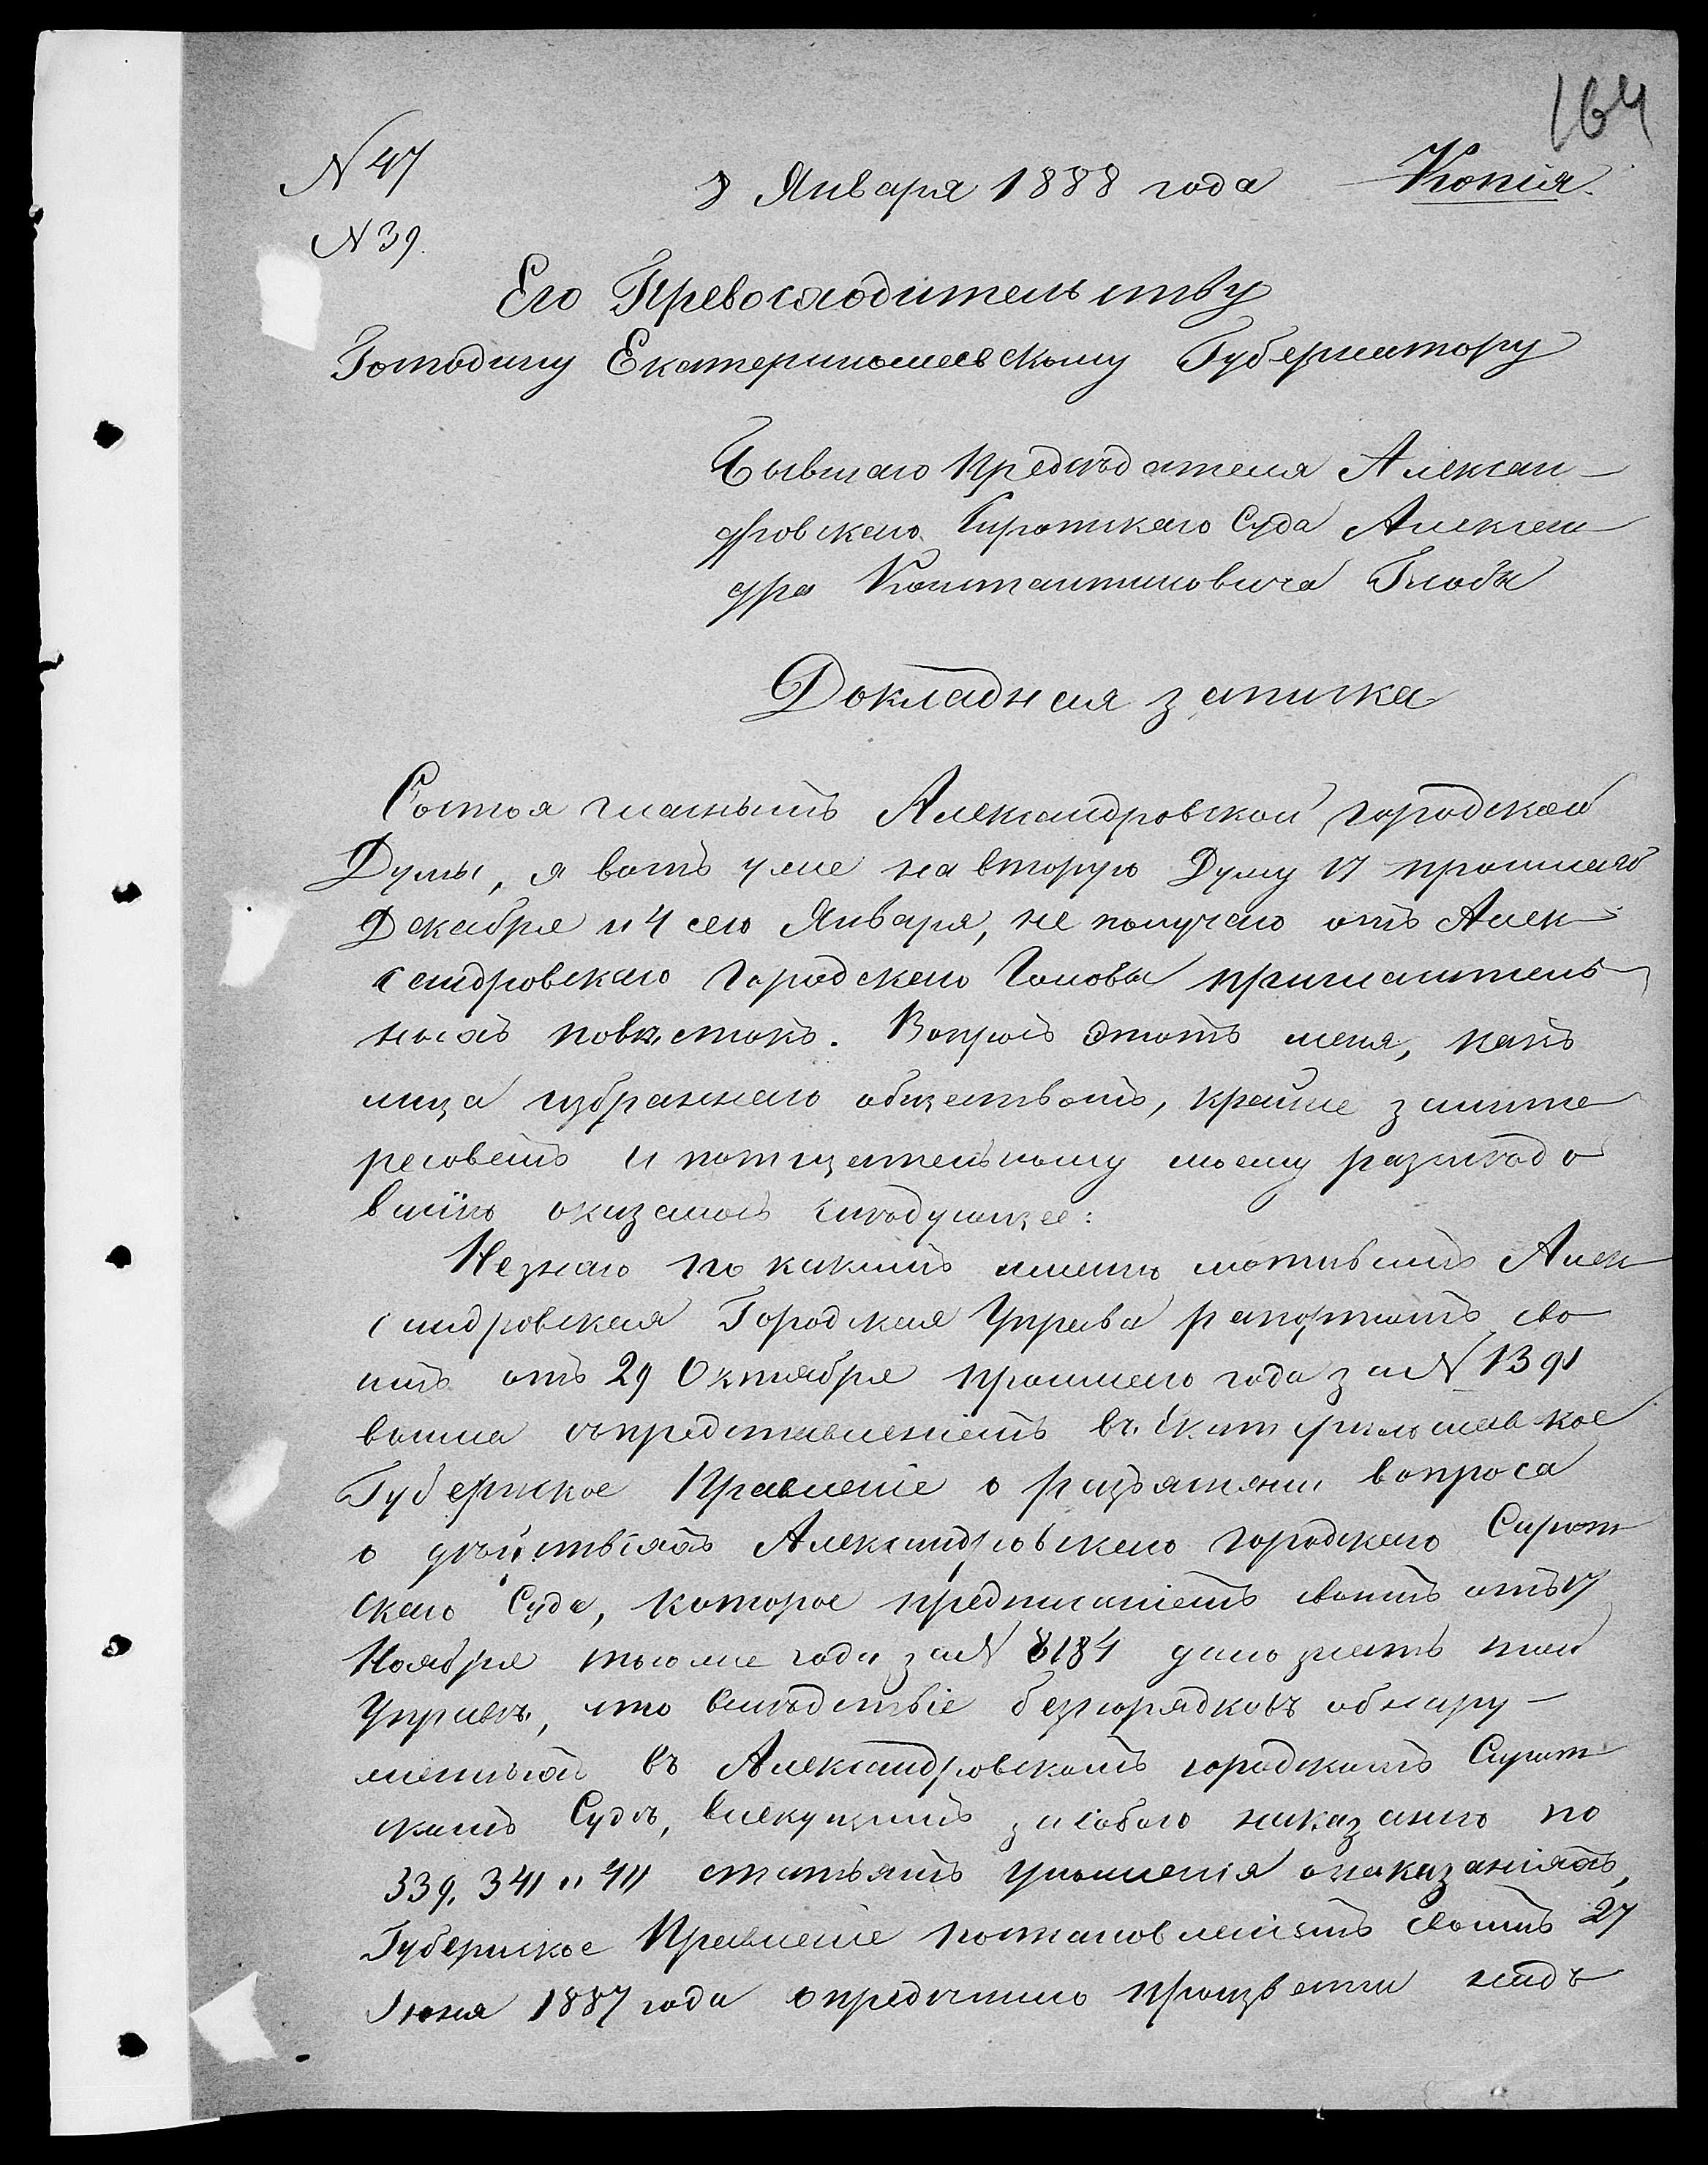 164
N 47
8 Января 1888 года Копія.
N 39.
Его Превосходительству
Господину Екатеринославскому Губернатору
Бывшаго Предсѣдателя Алексан-
дровскаго Сиротскаго Суда Алексан
дра Константиновича Глобы
Докладная записка
Состоя гласнымъ Александровской городской
Думы, я вотъ уже на вторую Думу 17 прошлаго
Декабря и 4 сего Января, не получаю отъ Алек
сандровскаго Городскаго Головы пригласитель
ныхъ повѣстокъ. Вопросъ этотъ меня, какъ
лица избраннаго обществомъ, крайне заинте
ресовалъ и по тщательному моему разслѣдо
ванію оказалось слѣдующее:
Незнаю по какимъ именно мотивамъ Алек
сандровская Городская Управа рапортомъ сво
имъ отъ 29 Октября прошлаго года за N 1391
вошла съ представленіемъ въ Екатеринославское
Губернское Правленіе о разъясненіи вопроса
о дѣйствіяхъ Александровскаго городскаго Сирот
скаго Суда, которое предписаніемъ своимъ отъ 17
Ноября того же года за N 8184 дало знать той
Управѣ, что вслѣдствіе безпорядковъ обнару-
женныхъ въ Александровскомъ городскомъ Сирот
скомъ Судѣ, влекущихъ за собою наказанію по
339, 341 и 411 статьямъ уложенія о наказаніяхъ,
Губернское Правленіе постановленіемъ своимъ 27
Іюня 1887 года опредѣлило произвести надъ